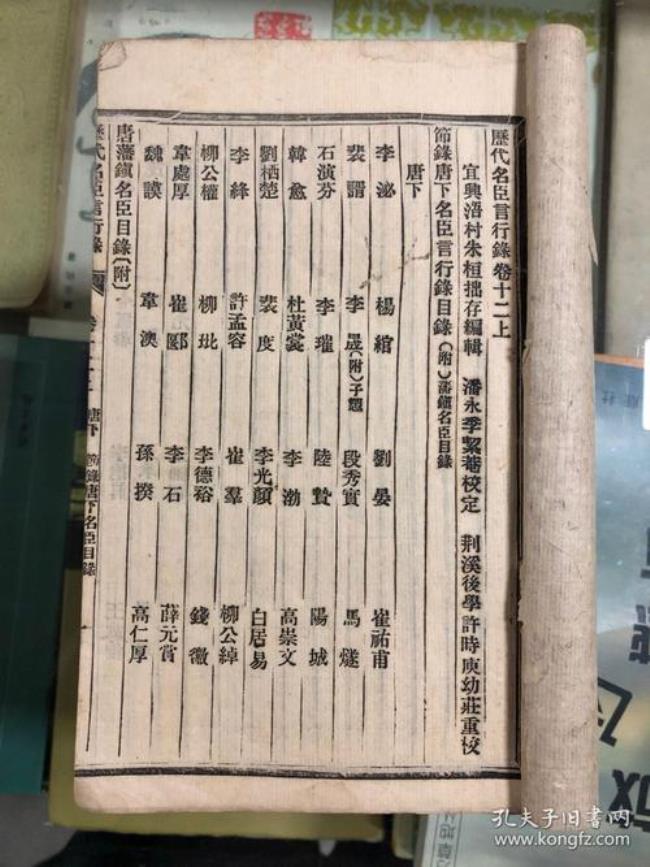 歷代名臣言行錄卷十二上
宜興浯村朱桓拙存編輯 潘永季絜菴校定 荆溪後學許時庚幼莊重校
節錄唐下名臣言行錄目錄（附）藩鎮名臣目錄
唐下
李泌 楊綰 劉晏 崔祐甫
裴諝 李晟（附）子愬 段秀實 馬燧
石演芬 李瓘 陸贄 陽城
韓愈 杜黃裳 李渤 高崇文
劉栖楚 裴度 李光顏 白居易
李絳 許孟容 崔羣 柳公綽
柳公權 柳玭 李德裕 錢徽
韋處厚 崔郾 李石 薛元賞
魏謨 韋澳 孫揆 高仁厚
唐藩鎮名臣目錄（附）
歷代名臣言行錄 唐下 節錄唐下名臣目錄
孔夫子旧书网